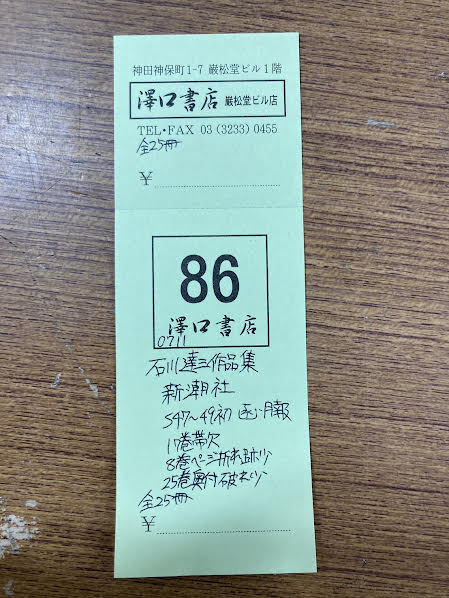 神田神保町1-7 巖松堂ビル1階
澤口書店 巖松堂ビル店
TEL・FAX 03(3233)0455
全25冊
¥
86
澤口書店
0711
石川達三作品集
新潮社
S47〜49初 函・月報
17巻帯欠
8巻ページ折れ跡少
25巻奥付破れ少
全25冊
¥